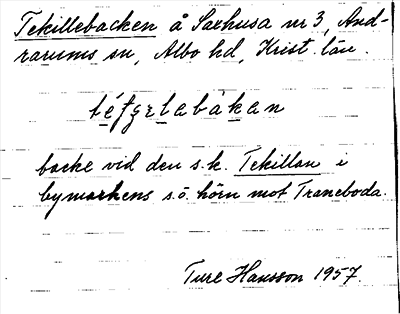 Tekillebacken å Saxhusa nr 3, And-
rarums sn, Albo hd, Krist. län.
backe vid den s.k. Tekillan i
bymarkens s.ö. hörn mot Traneboda.
Ture Hansson 1957.